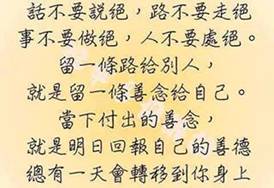 話不要説絕，路不要走絕
事不要做絕，人不要處絕。
留一條路給別人，
就是留一條善念給自己。
當下付出的善念，
就是明日回報自己的善德
總有一天會轉移到你身上